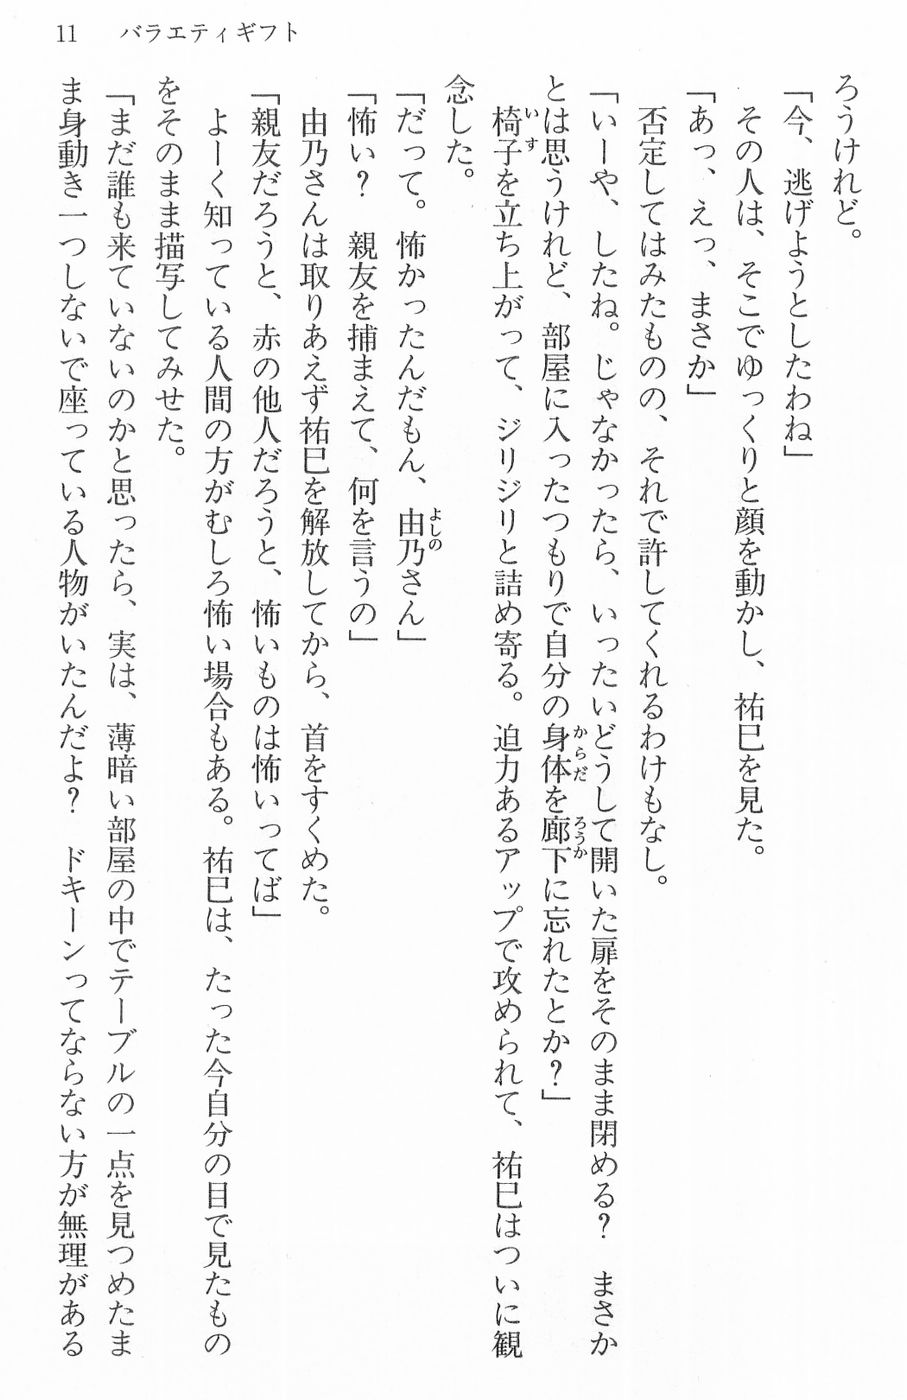 11　バラエティギフト
ろうけれど。
「今、逃げようとしたわね」
　その人は、そこでゆっくりと顔を動かし、祐巳を見た。
「あっ、えっ、まさか」
　否定してはみたものの、それで許してくれるわけもなし。
「いーや、したね。じゃなかったら、いったいどうして開いた扉をそのまま閉める？　まさか
とは思うけれど、部屋に入ったつもりで自分の身体を廊下に忘れたとか？」
　椅子を立ち上がって、ジリジリと詰め寄る。迫力あるアップで攻められて、祐巳はついに観
念した。
「だって。怖かったんだもん、由乃さん」
「怖い？　親友を捕まえて、何を言うの」
　由乃さんは取りあえず祐巳を解放してから、首をすくめた。
「親友だろうと、赤の他人だろうと、怖いものは怖いってば」
　よーく知っている人間の方がむしろ怖い場合もある。祐巳は、たった今自分の目で見たもの
をそのまま描写してみせた。
「まだ誰も来ていないのかと思ったら、実は、薄暗い部屋の中でテーブルの一点を見つめたま
ま身動き一つしないで座っている人物がいたんだよ？　ドキーンってならない方が無理がある